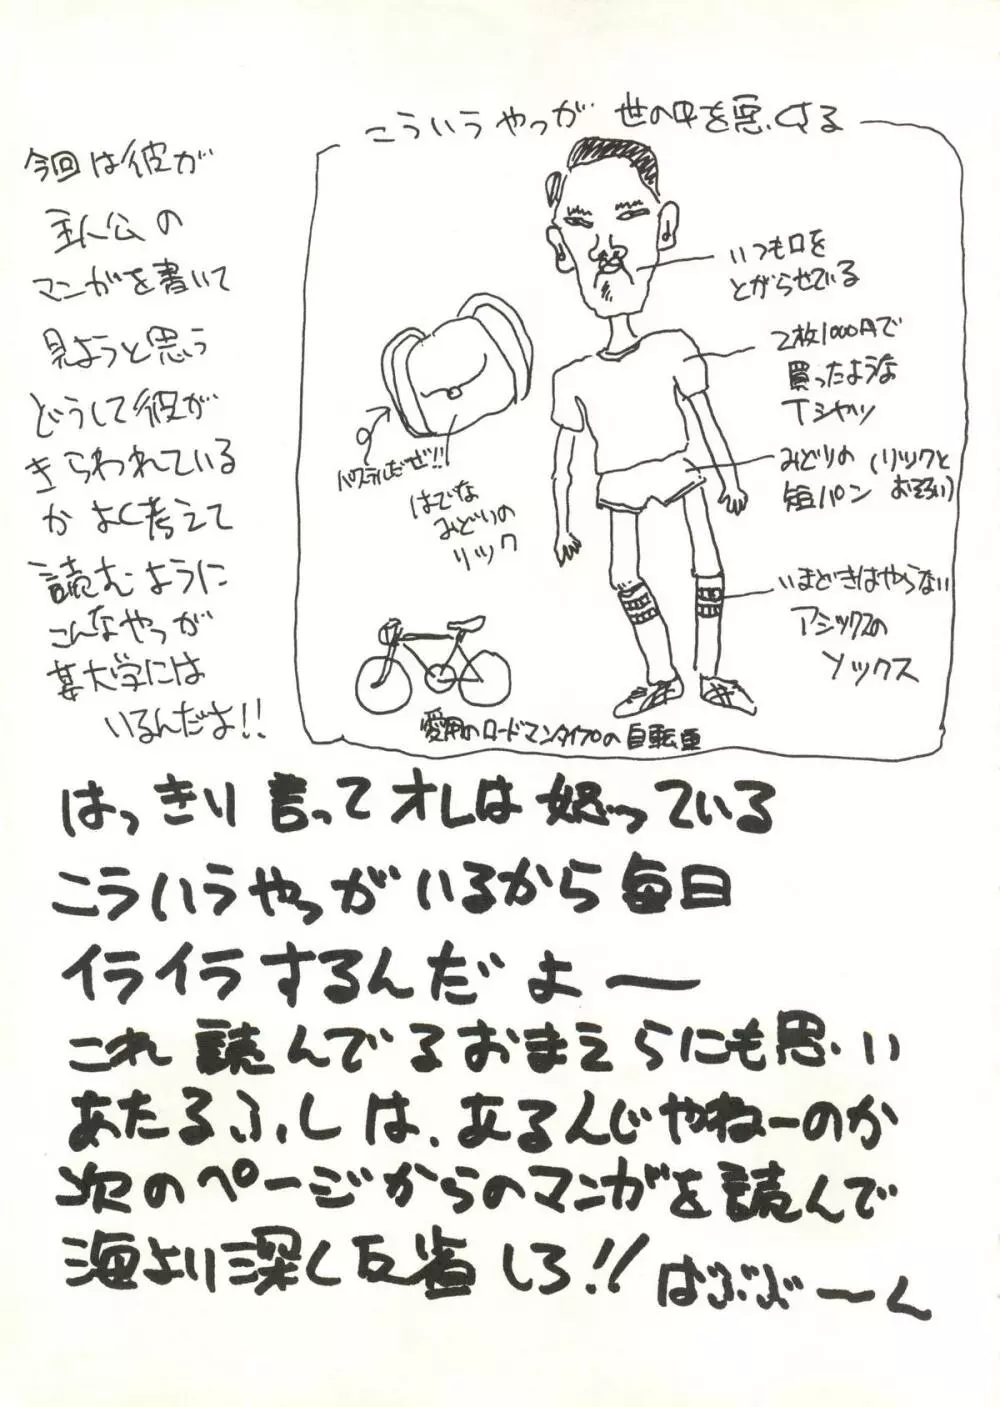 こういうやつが 世の中を悪くする
今回は彼が
主人公の
マンガを書いて
見ようと思う
どうして彼が
きらわれている
かよく考えて
読むように
こんなやつが
某大学には
いるんだよ!!
いつも口を
とがらせている
2枚1000円で
買ったような
Tシャツ
みどりの
短パン
(リックと
おそろい)
いまどきはやらない
アシックスの
ソックス
パステルだぜ!!
はでな
みどりの
リック
愛用のロードマンタイプの自転車
はっきり言ってオレは怒っている
こういうやつがいるから毎日
イライラするんだよー
これ読んでるおまえらにも思い
あたるふしは、あるんじゃねーのか
次のページからのマンガを読んで
海より深く反省しろ!!
ばぶぶーん